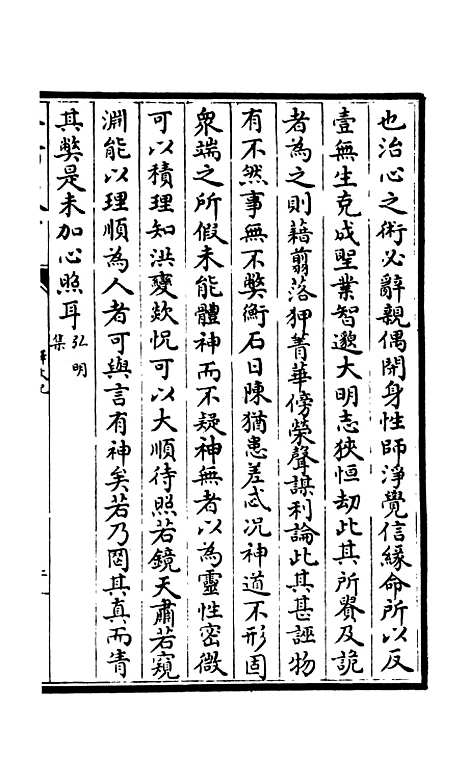 也治心之術必辭親偶閑身性師淨覺信緣命所以反
壹無生克成聖業智邈大明志狹恒劫此其所貴及詭
者為之則藉翦落狎菁華傍榮聲謀利論此其甚誣物
有不然事無不弊衡石日陳猶患差忒况神道不形固
衆端之所假未能體神而不疑神無者以為靈性密微
可以積理知洪變欻怳可以大順待照若鏡天肅若窺
淵能以理順為人者可與言有神矣若乃罔其真而眚
其弊是未加心照耳弘明
集
釋文紀